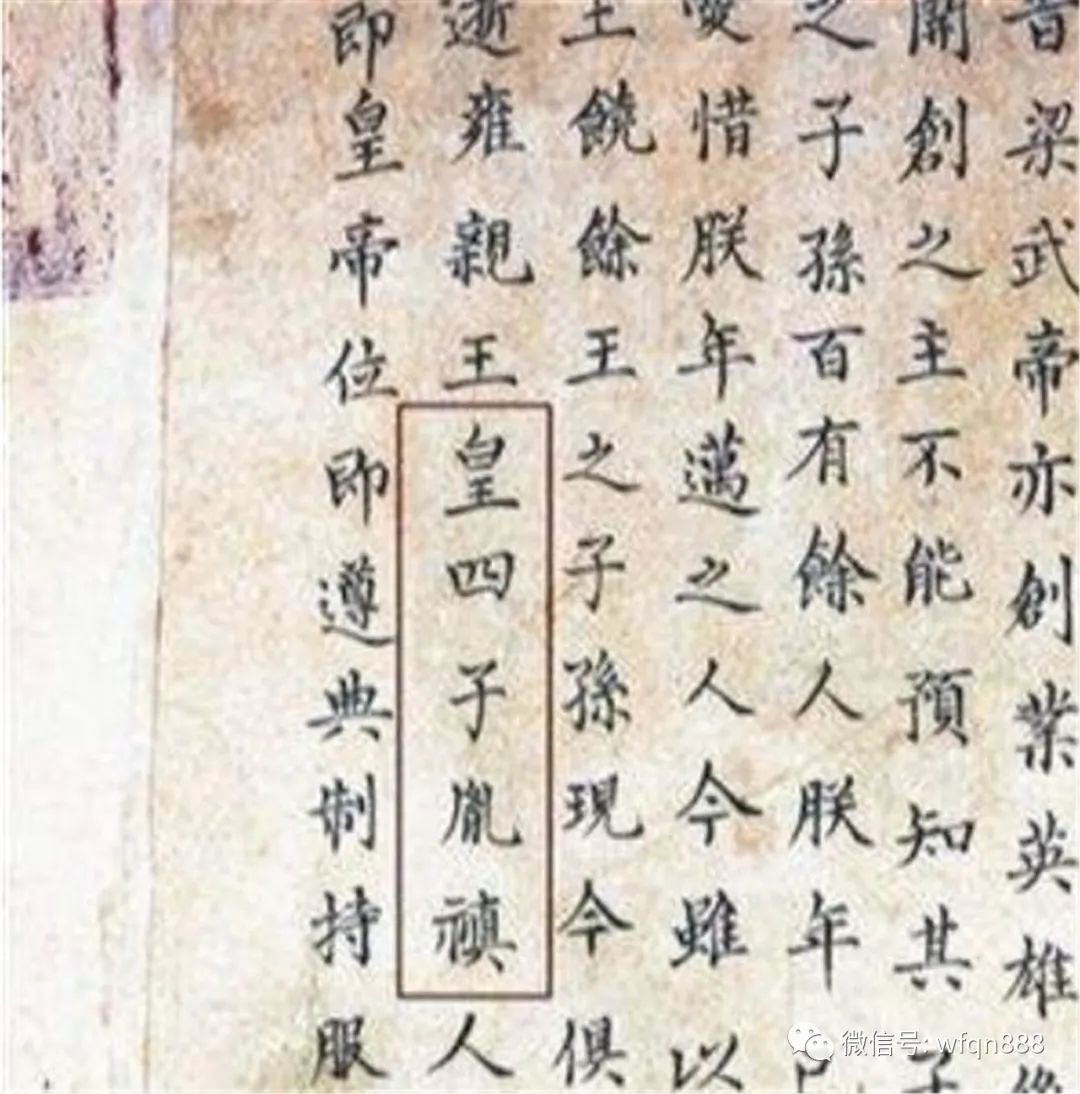 昔梁武帝亦創業英雄後
開創之主不能預知其子
之子孫百有餘人朕年已
惜朕年邁之人今雖以
王饒餘王之子孫現今俱
逝雍親王皇四子胤禛人
即皇帝位即遵典制持服
微信号: wfqn888